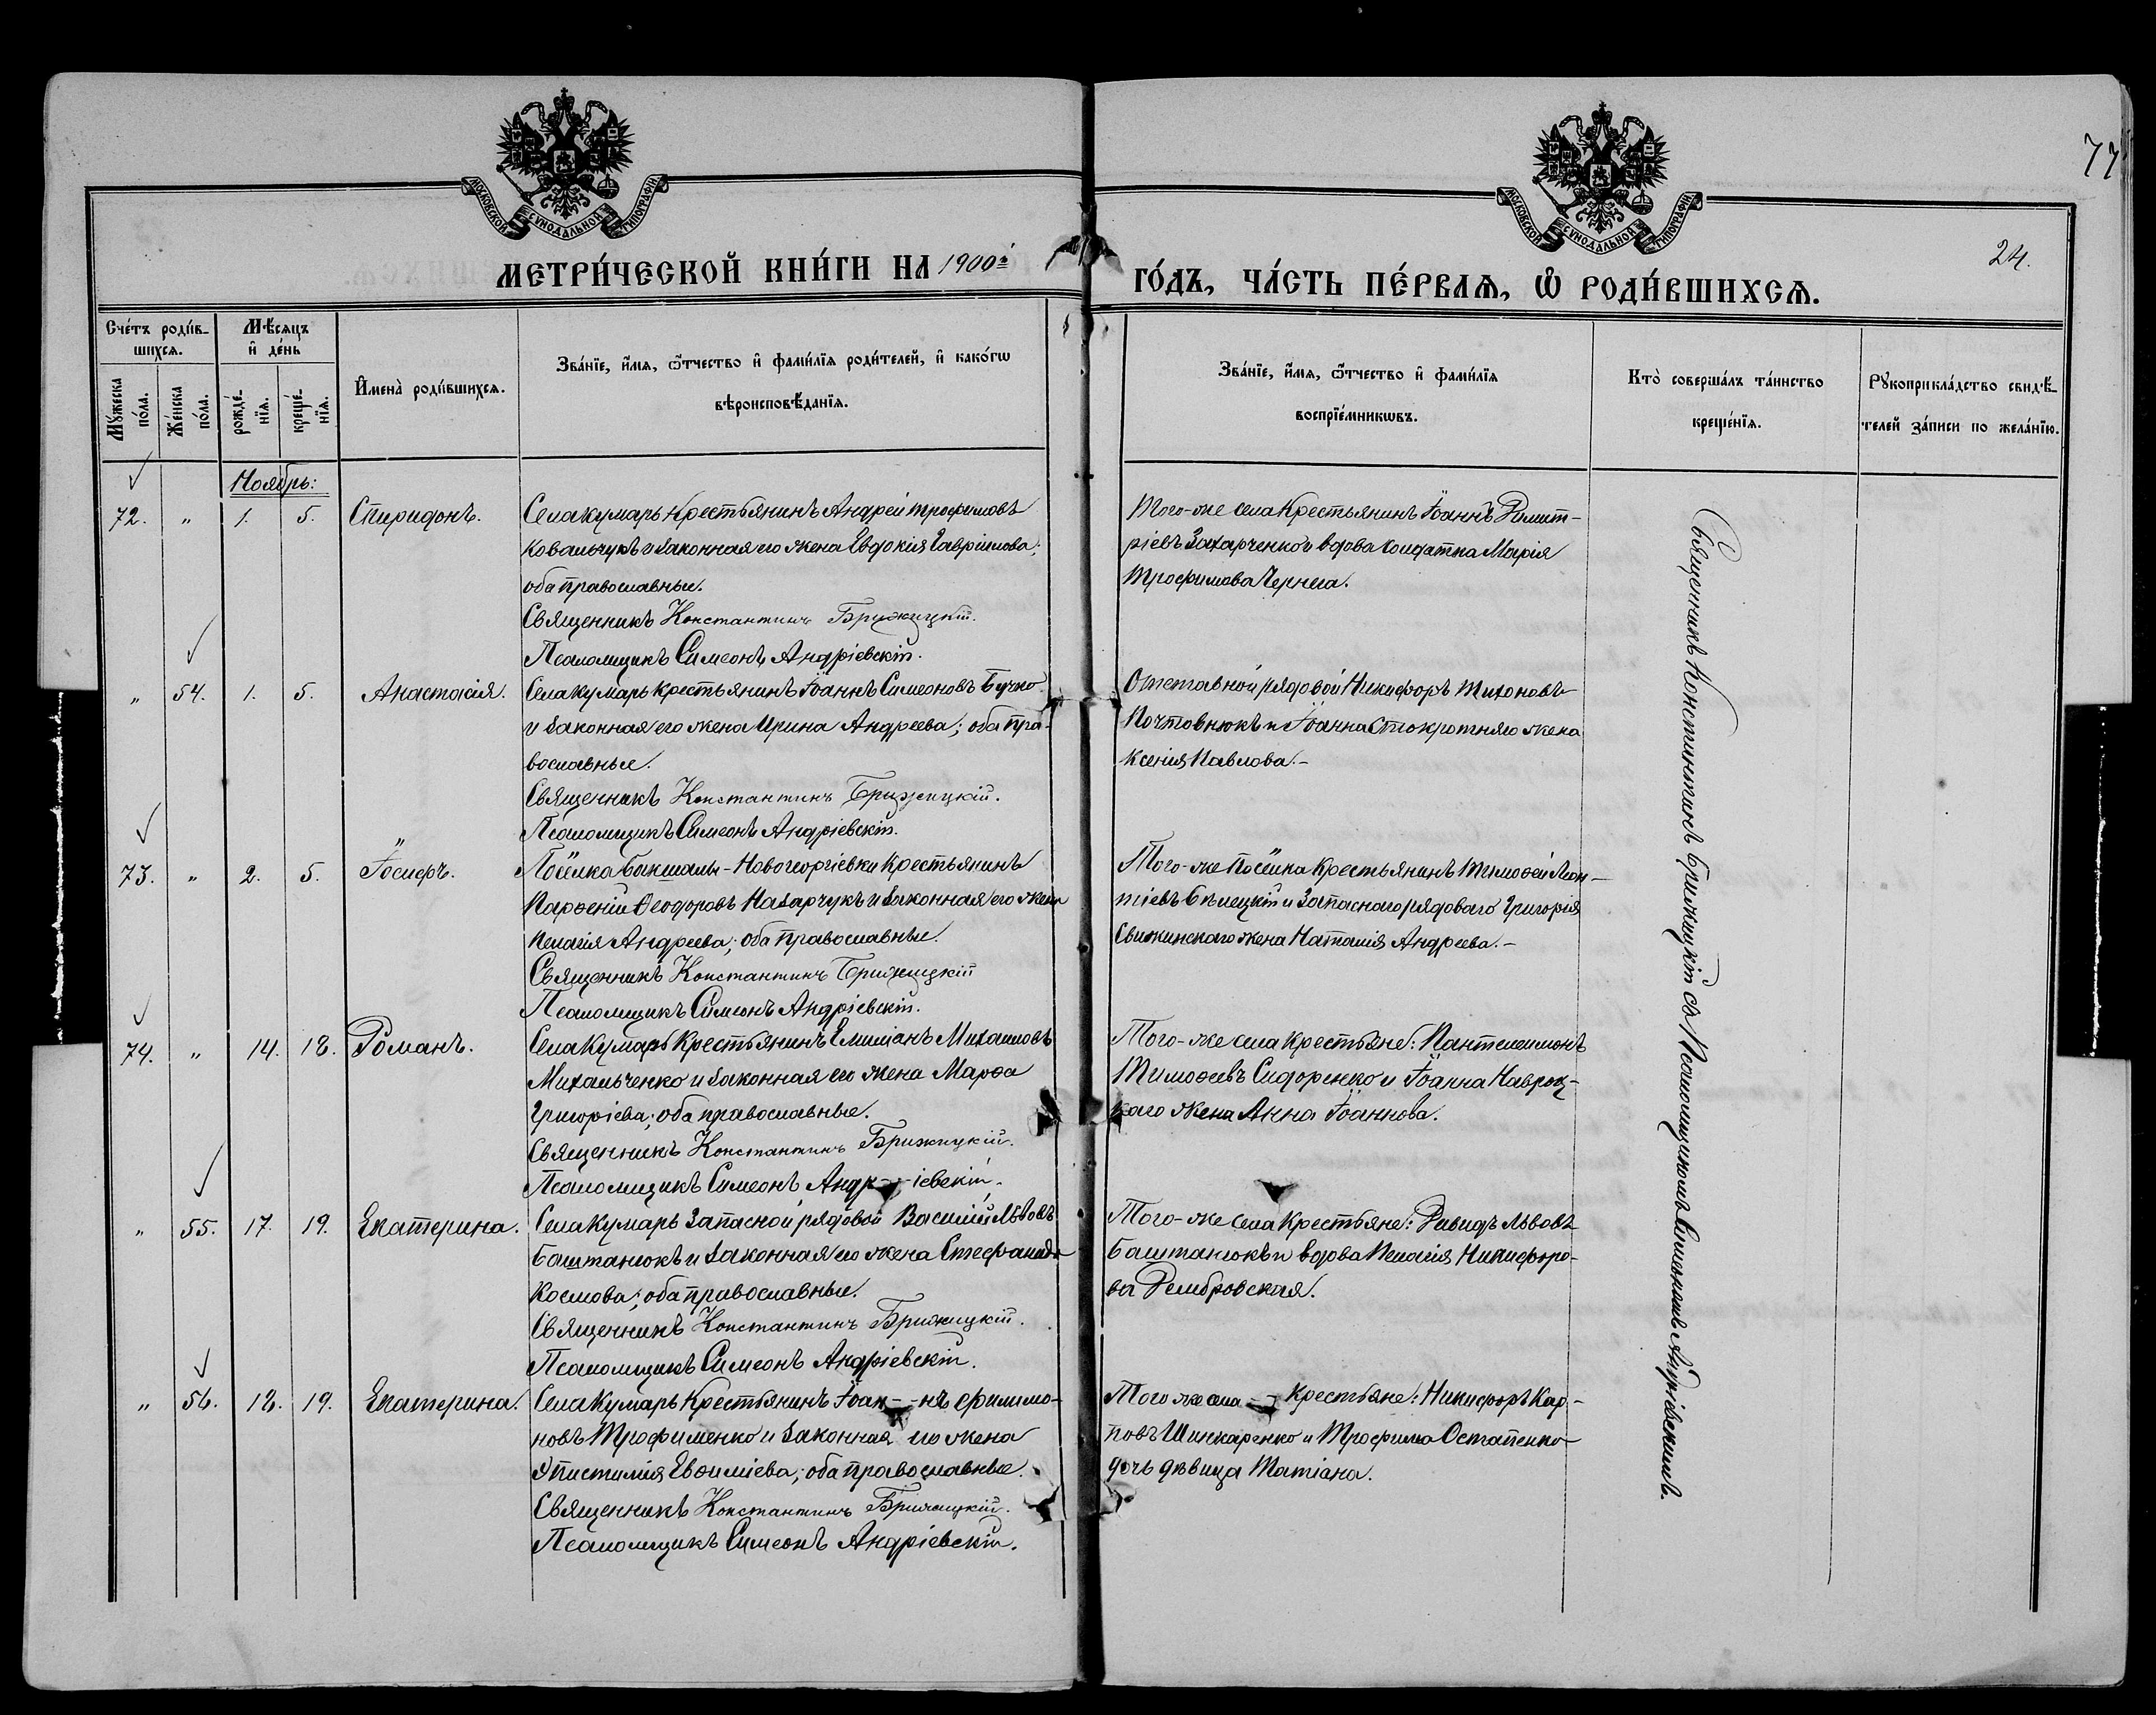 77
МОСКОВСКОЙ СѴНОДАЛЬНОЙ ТИПОГРАФІИ
МОСКОВСКОЙ СѴНОДАЛЬНОЙ ТИПОГРАФІИ
24.
МЕТРИ́ЧЕСКОЙ КНИ́ГИ НА 1900й ГО́ДЪ, ЧА́СТЬ ПЕ́РВАѦ, Ѡ РОДИ́ВШИХСѦ.
Сче́тъ роди́вшихсѧ.
Мꙋ́жеска по́ла.
Же́нска по́ла.
Мѣ́сѧцъ и҆ де́нь
рожде́нїѧ.
креще́нїѧ.
И҆мена̀ роди́вшихсѧ.
Зва́нїе, и҆́мѧ, ѻ҆́тчество и҆ фами́лїѧ роди́телей, и҆ како́гѡ
вѣроисповѣ́данїѧ.
Зва́нїе, и҆́мѧ, ѻ҆́тчество и҆ фами́лїѧ
воспрїе́мникѡвъ.
Кто̀ соверша́лъ та́инство
креще́нїѧ.
Рꙋкоприкла́дство свидѣ́-
телей за́писи по жела́нїю.
Ноябрь:
72. " 1. 5. Спиридонъ.
Села Кумарь крестьянинъ Андрей Трофимовъ
Ковальчукъ и законная его жена Евдокія Гавріилова;
оба православные.
Священникъ Константинъ Брижицкій.
Псаломщикъ Симеонъ Андріевскій.
Того-же села крестьянинъ Іоаннъ Димит-
ріевъ Захарченко и вдова солдатка Марія
Трофимова Чернега.
" 54. 1. 5. Анастасія.
Села Кумарь крестьянинъ Іоаннъ Симеоновъ Бучко
и законная его жена Ирина Андреева; оба пра-
вославные.
Священникъ Константинъ Брижицкій.
Псаломщикъ Симеонъ Андріевскій.
Отставной рядовой Никифоръ Тихоновъ
Почтовнюкъ и Іоанна жена
Ксенія Павлова.-
73. " 2. 5. Іосифъ.
Посёлка Бакшалы-Новогеоргіевки крестьянинъ
Парѳеній Ѳеодоровъ Назарчукъ и законная его жена
Пелагія Андреева; оба православные.
Священникъ Константинъ Брижицкій
Псаломщикъ Симеонъ Андріевскій.
Того-же посёлка крестьянинъ Тимоѳей Леон-
тіевъ Бѣлецкій и запаснаго рядоваго Григорія
Свижинскаго жена Наталія Андреева.-
74. " 14. 18. Романъ.
Села Кумарь крестьянинъ Михаиловъ
Михальченко и законная его жена Марѳа
Григоріева; оба православные.
Священникъ Константинъ Брижицкій.
Псаломщикъ Симеонъ Андр--іевскій.
Того-же села крестьяне: Пантелеимонъ
Тимоѳеевъ Сидоренко и Іоанна Навроц-
каго жена Анна Іоаннова.
" 55. 17. 19. Екатерина.
Села Кумарь запасной рядовой Василій Львовъ
Баштанюкъ и законная его жена Стефанида
Космова; оба православные.
Священникъ Константинъ Брижицкій.
Псаломщикъ Симеонъ Андріевскій.
Того-же села крестьяне: Давидъ Львовъ
Баштанюкъ и вдова Пелагія Никифоро-
ва Дембровская.
" 56. 18. 19. Екатерина.
Села Кумарь крестьянинъ Іоан--нъ Филимо-
новъ Трофименко и законная его жена
Епистимія Евѳиміева; оба православные.
Священникъ Константинъ Брижицкій.
Псаломщикъ Симеонъ Андріевскій.
Того же села -- крестьяне: Никифоръ Кар-
повъ Шинкаренко и Трофима Остапенко
дочь дѣвица Татіана.
Священникъ Константинъ Брижицкій съ Псаломщикомъ Симеономъ Андріевскимъ.